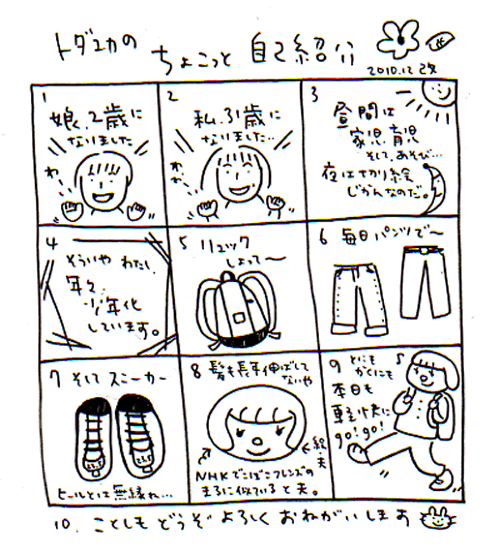 トダユカの ちょこっと 自己紹介
2010.12 改
1
娘、2歳に
なりました
わー
2
私、31歳に
なりました…
わー
3
昼間は
家児、育児
そして、あそび…
夜は切り絵
じかんなのだ。
4
そういや わたし、
年々、
少年化
しています。
5 リュック
しょって〜
6 毎日パンツで〜
7 そして スニーカー
23.5
23.5
ヒールとは無縁ね…
8 髪も長年伸ばして
ないや
←絵・夫
NHKでこぼこフレンズの
まろに似ている と夫。
9 とにも
かくにも
本日も
go! go!
10. ことしも どうぞ よろしく おねがいします